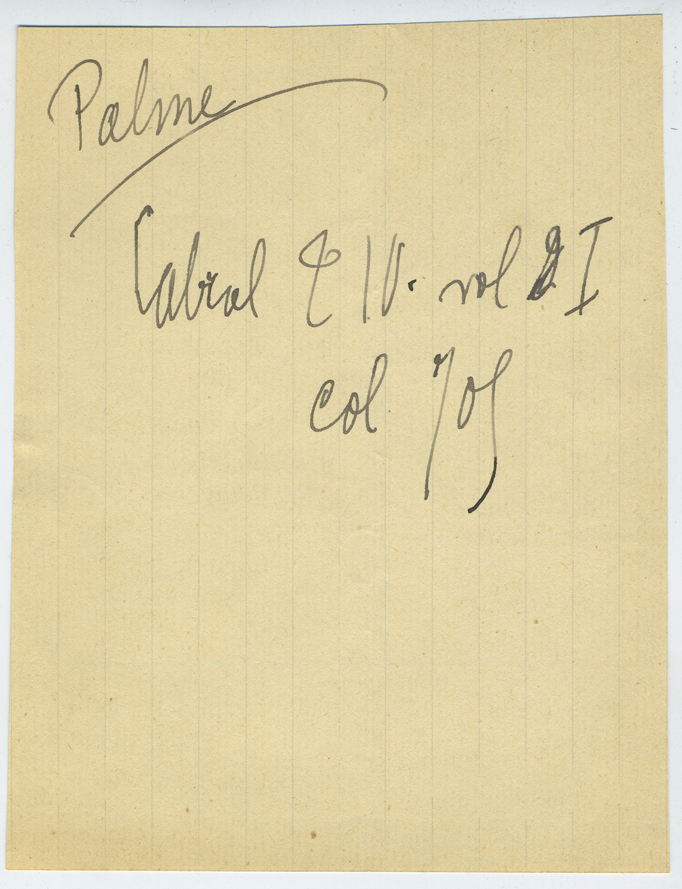 Palme
Cabrol T IV. vol I
col 705